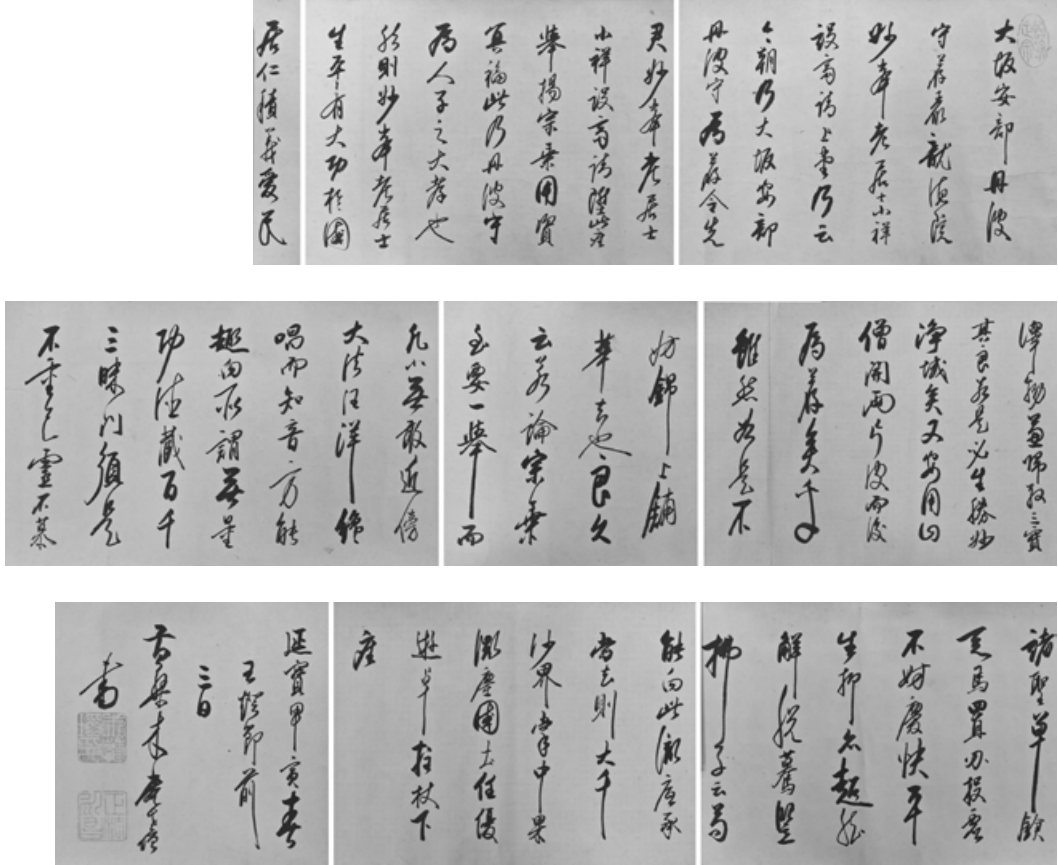 大坂安部丹波
守荐嚴龍
妙峯老居士小祥
設齋請上堂乃云
今朝乃大坂安部
丹波守為荐令先
君妙峯老居士
小祥設齋請陞此座
舉揚宗乘用資
冥福此乃丹波守
為人子之大孝也
然則妙峯老居士
生平有大功於國
居仁積義愛民
澤物兼歸敬三寶
其良若是必生勝妙
淨域矣又安用山
僧開兩片皮而後
為荐矣乎
雖然如是不
妨錦上鋪
華去也良久
云若論宗乘
至要一舉而
凡小無敢近傍
大法汪洋纔
唱而知音方能
趣向所謂無量
功德藏百千
三昧門須是
不重己靈不慕
諸聖單鎗
疋馬
不妨慶快平
生抑亦超然
解脫驀豎
拂子云苟
能向此微塵承
當去則大千
沙界掌中果
微塵國土任優
遊卓拄杖下
座
延寶甲寅春
王燈節前
三日
黃檗木菴
書